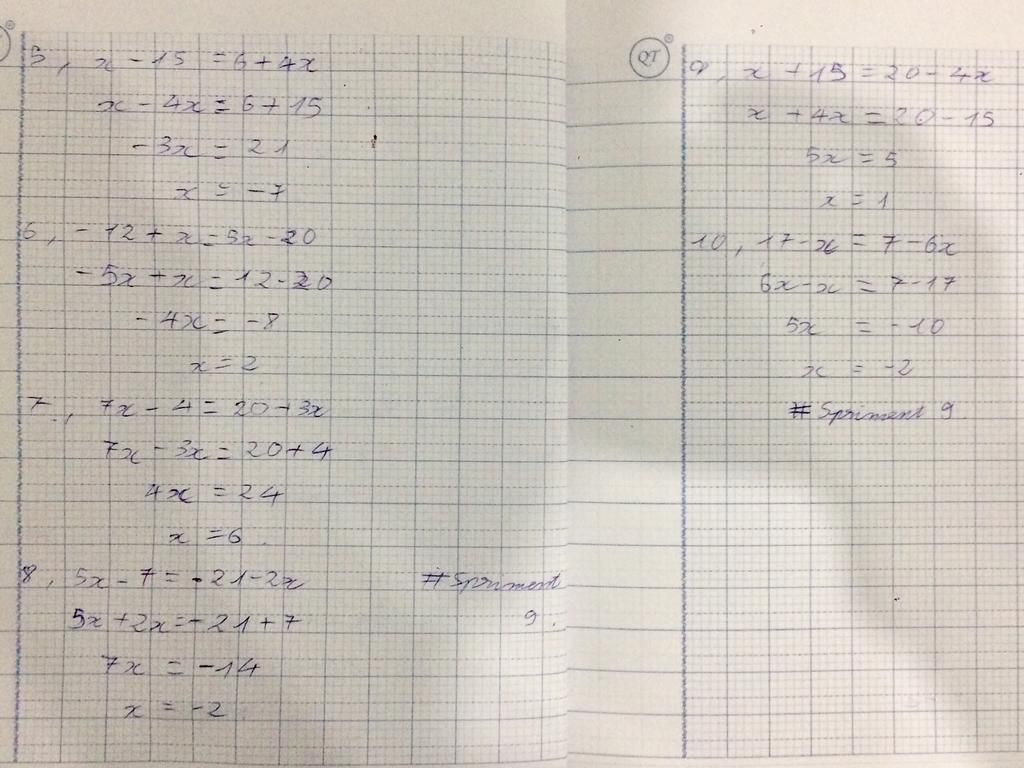 5, x - 15 = 6 + 4x
x - 4x = 6 + 15
-3x = 21
x = -7
6, -12 + x = 5x - 20
-5x + x = 12 - 20
-4x = -8
x = 2
7, 7x - 4 = 20 + 3x
7x - 3x = 20 + 4
4x = 24
x = 6.
8, 5x - 7 = -21 - 2x
5x + 2x = -21 + 7
7x = -14
x = -2
# Spriment
9.
QT
9, x + 15 = 20 - 4x
x + 4x = 20 - 15
5x = 5
x = 1
10, 17 - x = 7 - 6x
6x - x = 7 - 17
5x = -10
x = -2
# Spriment 9